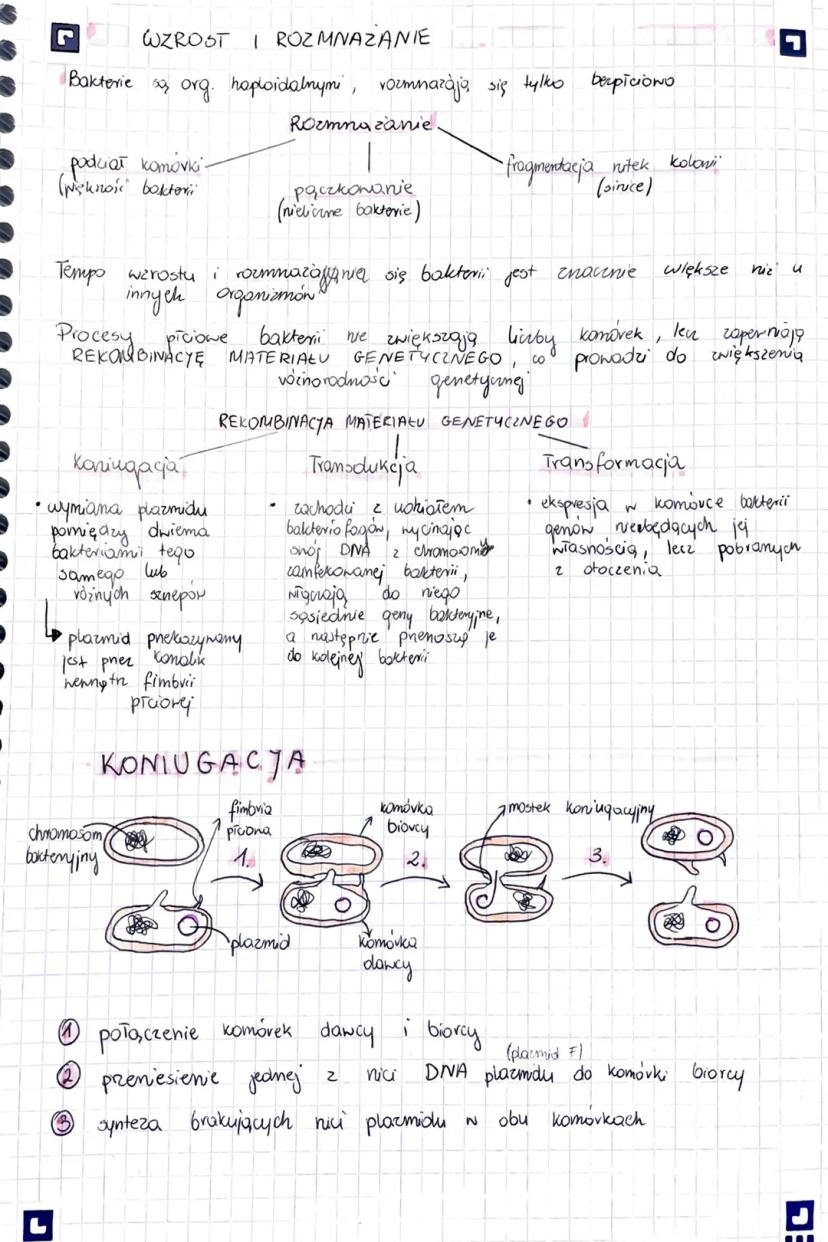 WZROST I ROZMNAŻANIE
Bakterie są org. haploidalnymi, rozmnażają się tylko bezpłciowo
Rozmnażanie
podział komórki
(większość bakterii
pączkowanie
(nieliczne bakterie)
fragmentacja nitek kolonii
(sinice)
Tempo wzrostu i rozmnażania się bakterii jest znacznie większe niż u
innych organizmów
Procesy płciowe bakterii nie zwiększają liczby komórek, lecz zapewniają
REKOMBINACYĘ MATERIAŁU GENETYCZNEGO, co prowadzi do zwiększenia
różnorodności genetycznej
REKOMBINACJA MATERIAŁU GENETYCZNEGO
Koniugacja
• wymiana plazmidu
pomiędzy dwiema
bakteriami tego
samego lub
różnych szczepów
plazmid przekazywany
jest przez kanalik
wewnątrz fimbrii
płciowej
Transdukcja
• zachodzi z udziałem
bakteriofagów, wycinając
swój DNA z chromosomu
zainfekowanej bakterii,
włączają do niego
sąsiednie geny bakteryjne,
a następnie przenoszą je
do kolejnej bakterii
Transformacja
• ekspresja w komórce bakterii
genów niebędących jej
własnością, lecz pobranych
z otoczenia
KONIUGACJA
chromosom
bakteryjny
fimbria
płciowa
1.
plazmid
komórka
biorcy
2.
komórka
dawcy
mostek koniugacyjny
3.
1 połączenie komórek dawcy i biorcy
(plazmid F)
2 przeniesienie jednej z nici DNA plazmidu do komórki biorcy
3 synteza brakujących nici plazmidu w obu komórkach